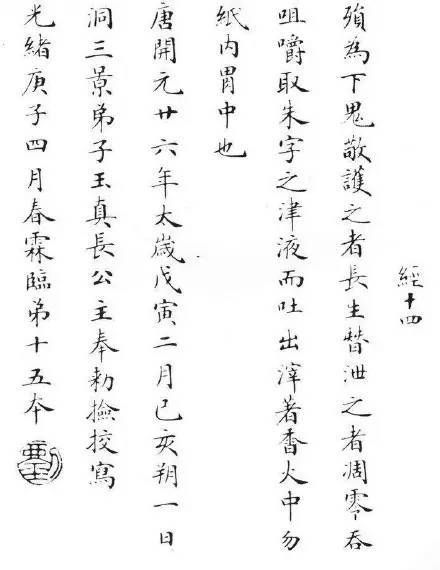 經十四
殞為下鬼敬護之者長生替泄之者凋零吞
咀嚼取朱字之津液而吐出滓著香火中勿
紙內胃中也
唐開元廿六年太歲戊寅二月己亥朔一日
洞三景弟子玉真長公主奉勅撿挍寫
光緒庚子四月春霖臨弟十五夲